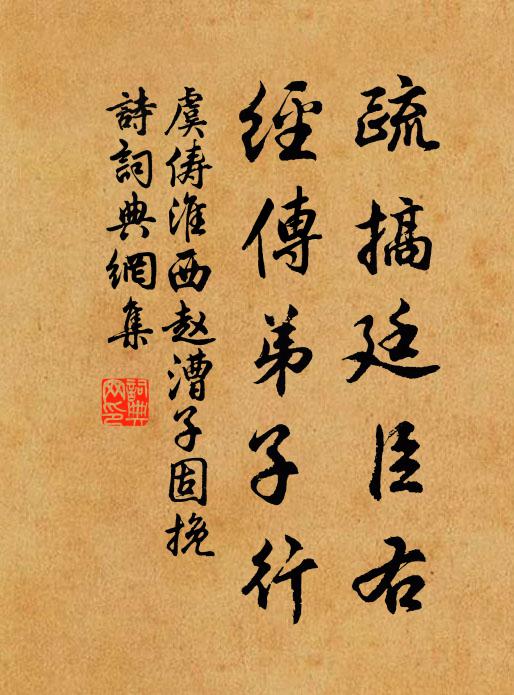 疏搞廷臣右
經傳弟子行
虞俦淮西赵漕子固挽
詩詞典網集
詞典網印